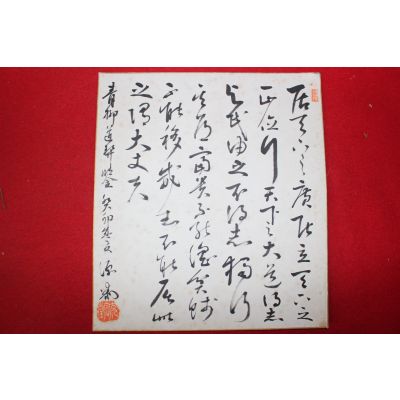 居天下之廣居立天下之
正位行天下之大道得志
與民由之不得志獨行
其道富貴不能淫貧賤
不能移威武不能屈此
之謂大丈夫
青柳 癸卯